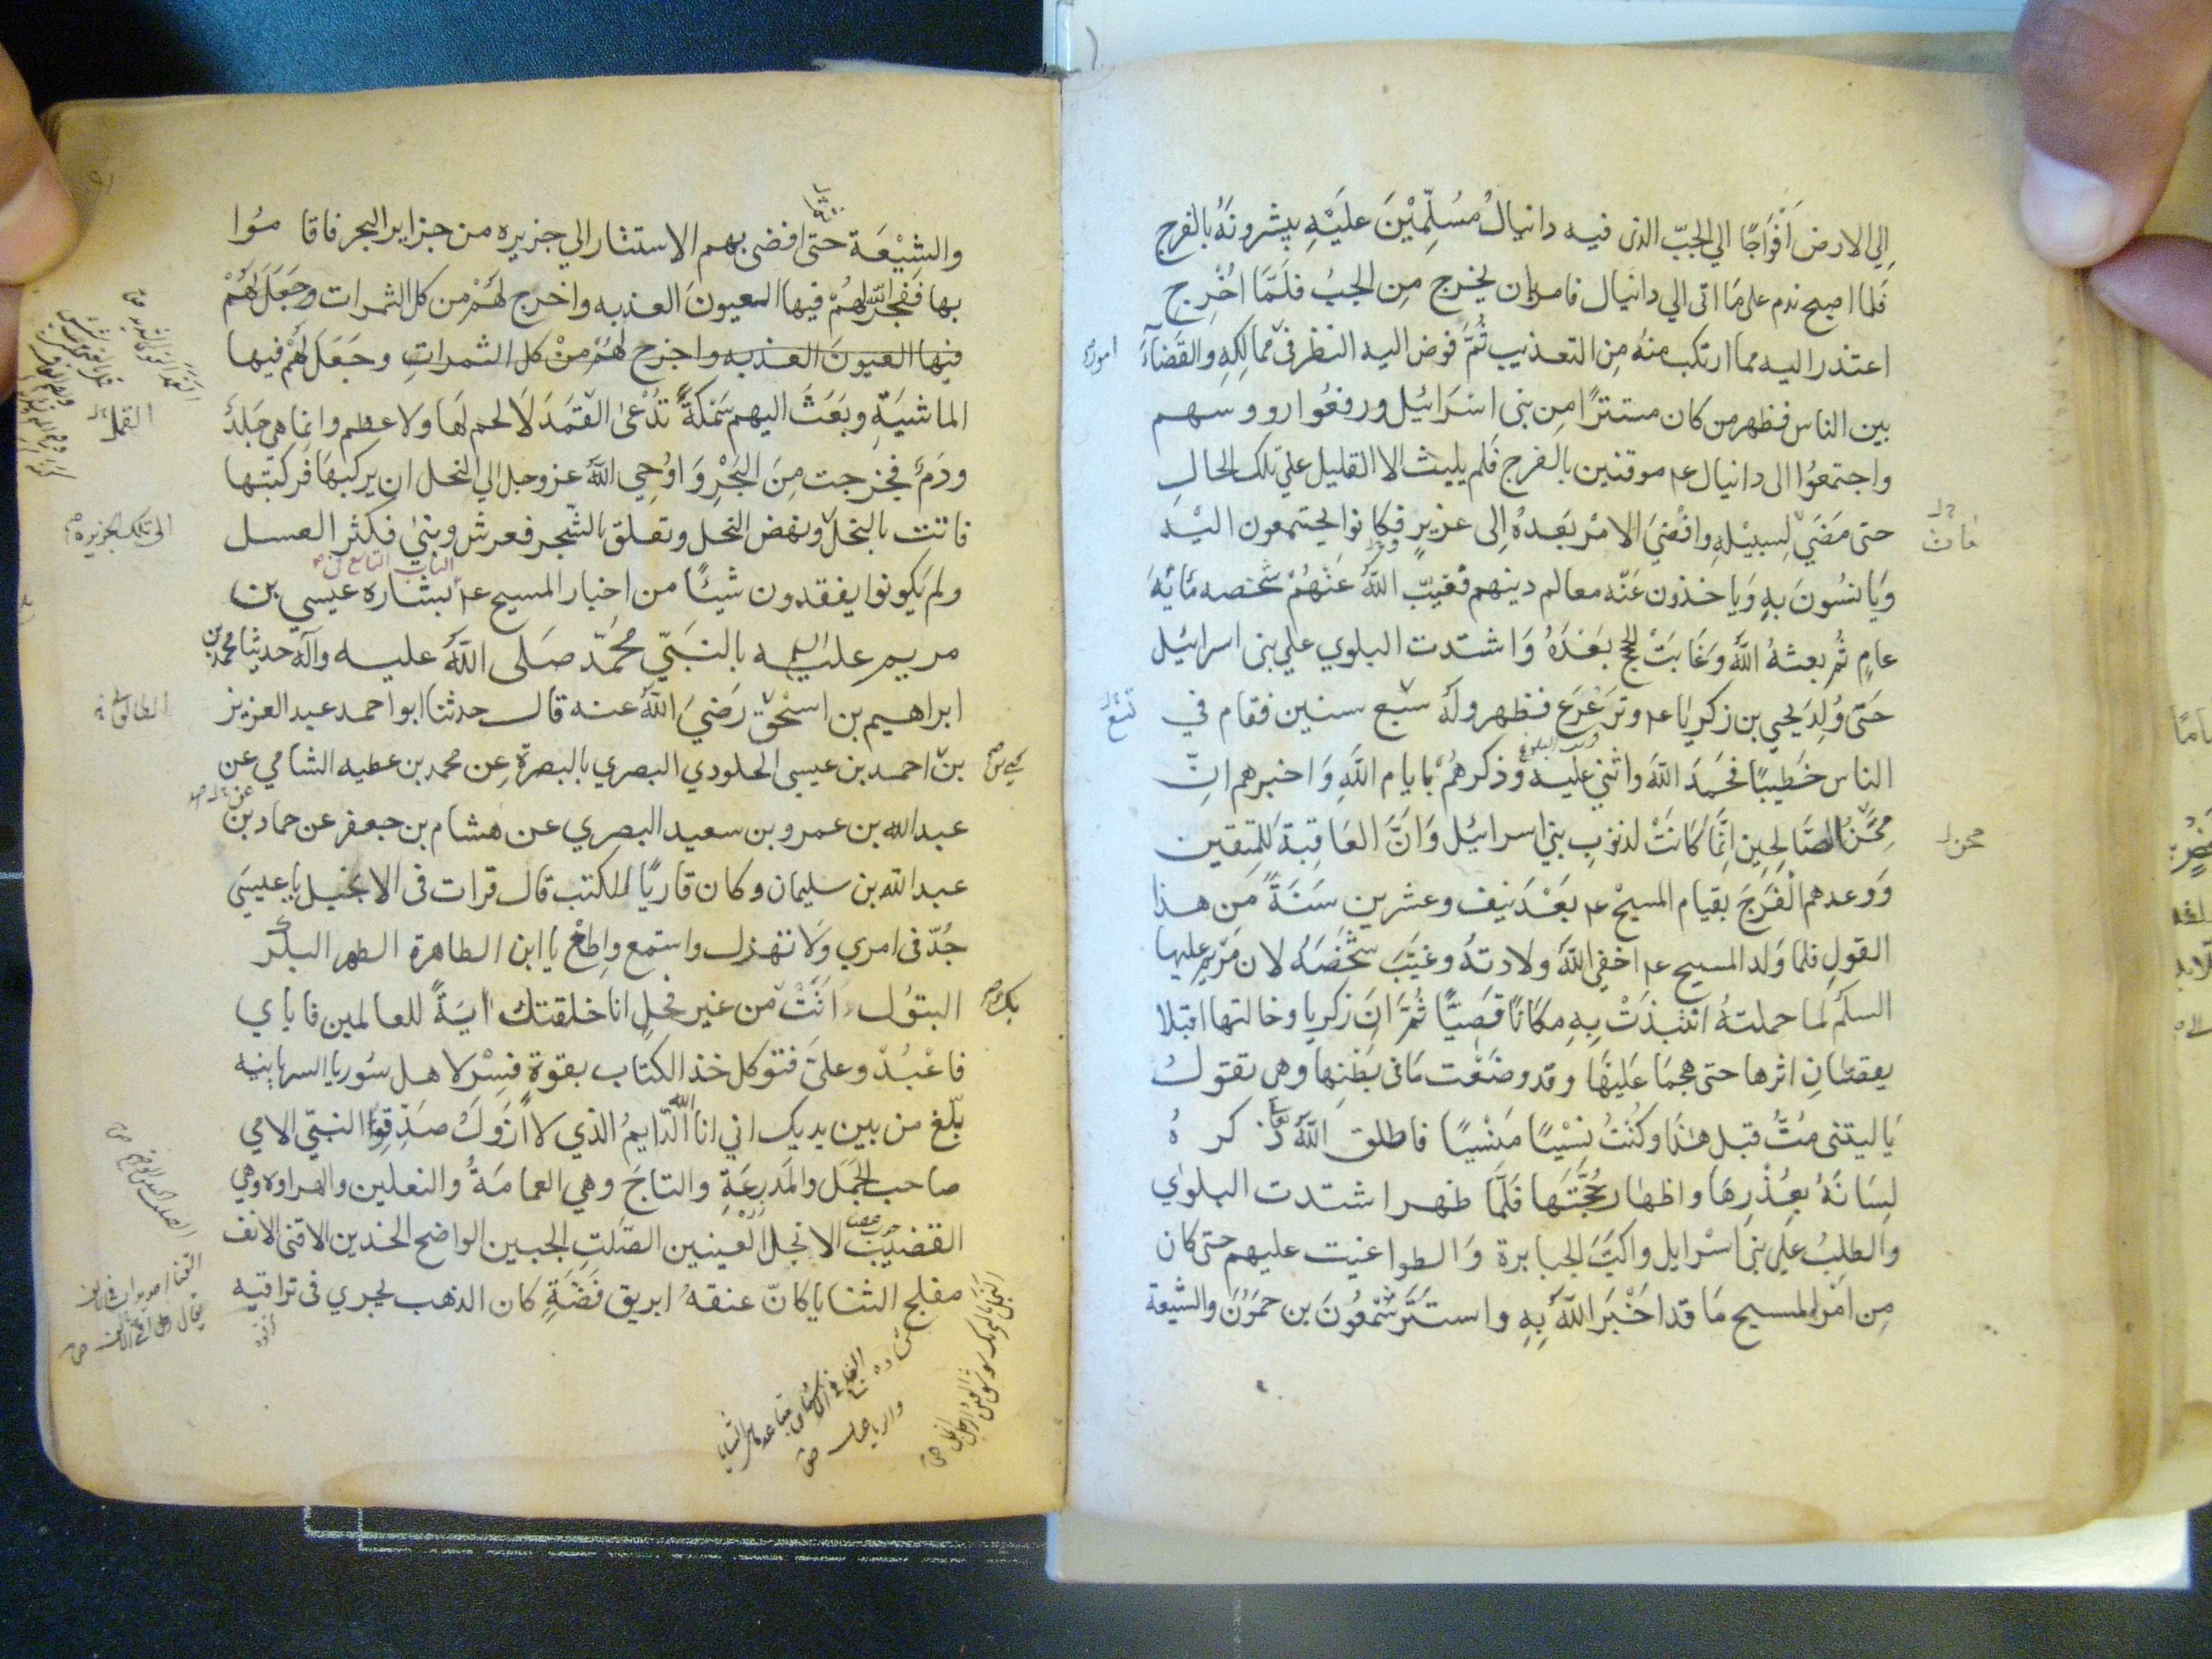 إلي الارض أفْوَاجًا الي الجبّ الذى فيه دانيالُ مُسَلِّمِيْنَ عليْهِ يبشرونَهُ بالفرج
فَلما اصبح ندم على مَا اتى الي دانيال فامر بان يخرج مِن الجبُ فَلَمَّا اخْرِج
اعتذر اليه مما ارتكب منهُ مِن التعذيب ثُمَّ فوض اليه النظر في ممالِكِهِ والقَضَآءَ
امور
بين الناس فظهر من كان مستترًا مِن بنى اسْرَائيل ورفعُوا رووسهم
واجتمعُوا الى دانيال ع م موقنين بالفرج فَلم يلبث الا القليل علي تلك الحالِ
حتى مَضَي لِسبيْلِهِ وافْضَيَ الامْر بَعدهُ إلى عزيرٍ فكانوا يجتمعون اليْهِ
مات
وَيَانسُونَ بهِ وَياخذون عَنْه معالم دينهم فَغيبّ اللهُ عَنْهُمْ شخصه مَائَهَ
عامٍ ثُم بعثهُ اللهُ وَغَابَتْ الحجج بَعْدَهُ وَاشتدت البلوي علي بنى اسرائيل
حَتى وُلِدَ يحيى بن زكريا ع م وترَعْرَعَ فظهر ولهُ سَبع سنين فقام في
تسع
الناس خَطيبًا فحَمَدَ اللهَ واثني عليه وَذكرهُمْ بايام اللهِ وَاخبرهم انّ
مِحَن الصَّالِحِين اِنَّمَا كَانَتْ لذنوبِ بني اسرائيل وَانَّ العَاقبة لِلمتقين
محن
وَوعدهم الْفَرَجَ بقيام المسيح ع م بَعْدَ نيف وعشرين سَنَةً مِن هذا
القولِ فلما وَلد المسيح ع م اخفى اللهُ ولادتهُ وغيَّبَ شخْصَهُ لان مَرْيم عليها
السلَم لما حملتهُ انتبَذَتْ بِهِ مكَانًا قَصِيًّا ثُمَّ انَ زكريا وخالتها اقبلا
يقصّان اثرها حتى هجمَا عَليْها وقد وضَعْت مَا فى بَطْنِها وهى تقولُ
يَا ليتنى مِتُّ قبل هذَا وكُنْتُ نِسْيًا مَنْسِيًا فاطلق اللهُ ذكرهُ
لِسَانَهُ بعُذْرِهَا واظهار حُجَّتِها فَلمَّا ظهر اشتدت البلوي
والطلبُ عَلي بنى اسْرايل واكبَّ الجبابرة وَالطواغيت عليهم حتى كان
مِن امْر المسيح مَا قد اخْبَرَ اللهُ بِهِ واستتَرَ شَمْعُونَ بن حَمُوْنَ والشيعة
والشِيْعَة حتى افضى بهم الاستتار الي جزيره من جزاير البحر فاقا مُوا
بها ففجَر الله لهُمْ فيها العيونَ العذبه واخرج لهَمْ من كل الثمرات وجَعَلَ لَهُمْ
فيها العيونَ العذبه واخرج لهُمْ مِنْ كل الثمراتِ وجَعَلَ لَهُمْ فيها
الماشيَةِ وبَعَثَ اليهم سَمَكَةً تُدْعىٰ القَمَدَ لَا لحم لَها ولا عظم وانما هى جَلدٌ
القمل
ودَمٌ فخرجت مِنَ البَحْرِ وَاوُحِي اللهَ عز وجل الي النحل ان يركبهَا فركبَتها
فاتت بالنحل ونهض النحل وتعلق بالشّجر فعرش وبنيٰ فكثر العسل
الى تلك الجزيرة
ولم يَكونوا يفقدون شيئًا من اخبار المسيح ع م بشاره عيسي بن
الباب التاسع
مريم عليه السلم بالنبيّ محمّد صَلى اللهَ عليه وآله حدثنا محمد بن
ابراهيم بن اسحٰق رَضىَ اللهُ عنه قال حدثنا ابو احمد عبد العزيز
الطالقانى
بن احمد بن عيسى الجلودي البصري بالبصرة عِن محمد بن عطيه الشامي عن
يحيى
عبد الله بن عمرو بن سعيد البصري عن هشام بن جعفر عن حماد بن
عبد الله بن سليمان وكان قاريًا للكتب قال قرات فى الانجيل يا عيسَي
جُدّ فى امري وَلا تهزل واستمع واِطِعْ يا ابن الطاهرة الطهر البكر
البتوُل اَنْتْ من غير فحلِ انا خلقتك اٰيَةً للعالمين فاياي
بكر
فاعْبُدْ وعليَّ فتوكل خذ الكتاب بقوة فَسِرْ لاهل سُوريا السريانيه
بلّغ من بين يديك اني انا الله الدّايمُ الذي لا اَزولُ صَدِّقوُا النبيّ الامي
صاحب الجَمَل والمَدرعَةِ والتاجَ وهي العمامَةُ والنعلين والهراوه وهى
القضيب الانجل العينين الصّلتِ الجبين الواضح الخدين الاقنى الانف
مفلج الثنايا كانّ عنقهُ ابريق فضّةٍ كان الذهب يجري فى تراقيه